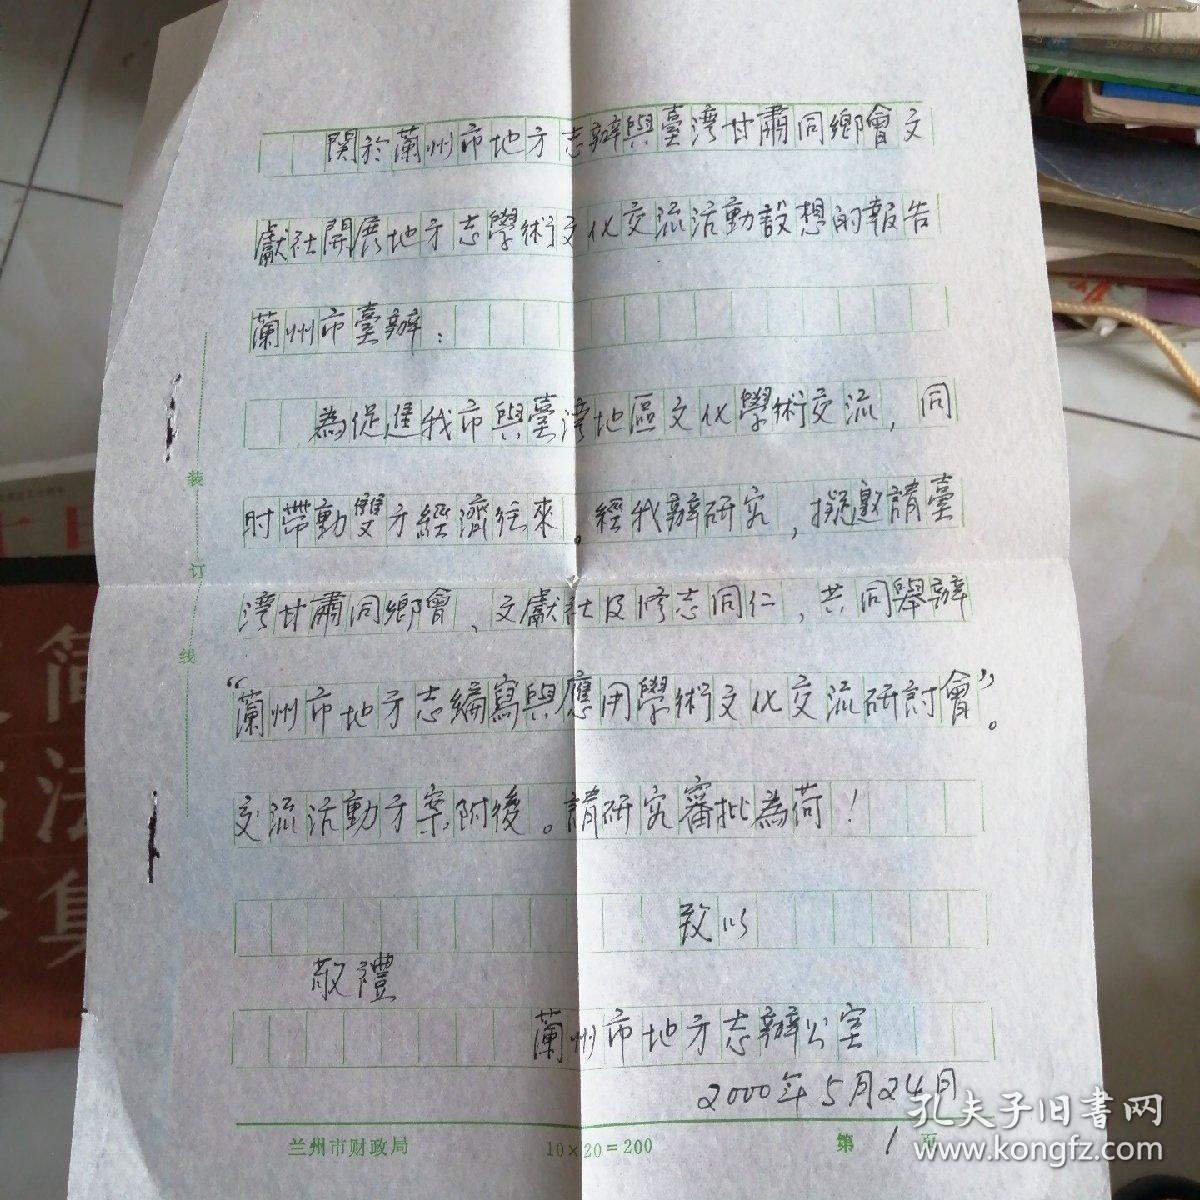 關於蘭州市地方志辦與臺灣甘肅同鄉會文
獻社開展地方志學術文化交流活動設想的報告
蘭州市臺辦：
為促進我市與臺灣地區文化學術交流，同
时帶動雙方經濟往來。經我辦研究，擬邀請臺
灣甘肅同鄉會、文獻社及修志同仁，共同舉辦
“蘭州市地方志編寫與應用學術文化交流研討會”。
交流活動方案附後。請研究審批為荷！
致以
敬禮
蘭州市地方志辦公室
2000年5月24日
兰州市财政局 10×20=200 第1页
装
订
线
孔夫子旧书网
www.kongfz.com